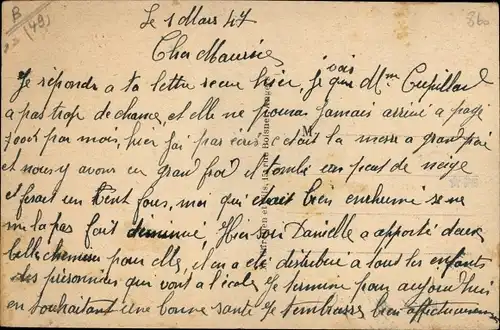 B
(49)
860
Le 1 Mars 47
Cher Maurice
Je répondra a ta lettre recue hier, Je vois que Mme Cupillard
a pas trop de chance, et elle ne pourra jamais arrivé a payé
par mois, hier j'ai pas écris c'était la messe a grand
et nous y avons eu grand froid il tombé un peut de neige
et fesait un vent fous, moi qui était bien enchurmé se ne
me la pas fait deminué, Hier soir Danielle a apporté deux
belle chemise pour elle, il en a été distribué a tout les enfants
des prisonniers qui vont a l'école, Je termine pour aujourd'hui
en souhaitant une bonne santé Je t'embrasse bien affectueusement